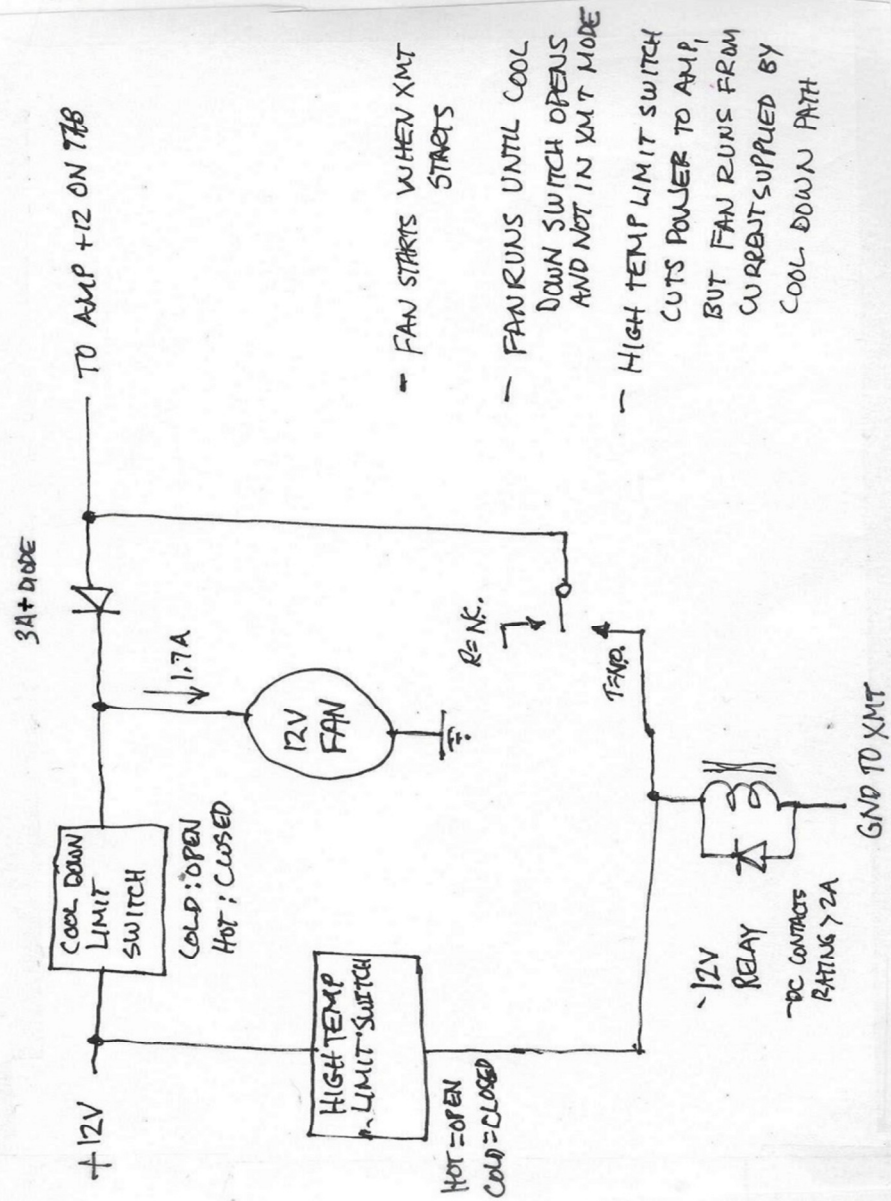 +12V
COOL DOWN
LIMIT
SWITCH
COLD: OPEN
HOT: CLOSED
3A+ DIODE
TO AMP +12 ON
1.7A
12V
FAN
HIGH TEMP
LIMIT SWITCH
HOT=OPEN
COLD=CLOSED
R=N.C.
T=N.O.
-12V
RELAY
-DC CONTACTS
RATING > 2A
GND TO XMT
- FAN STARTS WHEN XMT
STARTS
- FAN RUNS UNTIL COOL
DOWN SWITCH OPENS
AND NOT IN XMT MODE
- HIGH TEMP LIMIT SWITCH
CUTS POWER TO AMP,
BUT FAN RUNS FROM
CURRENT SUPPLIED BY
COOL DOWN PATH